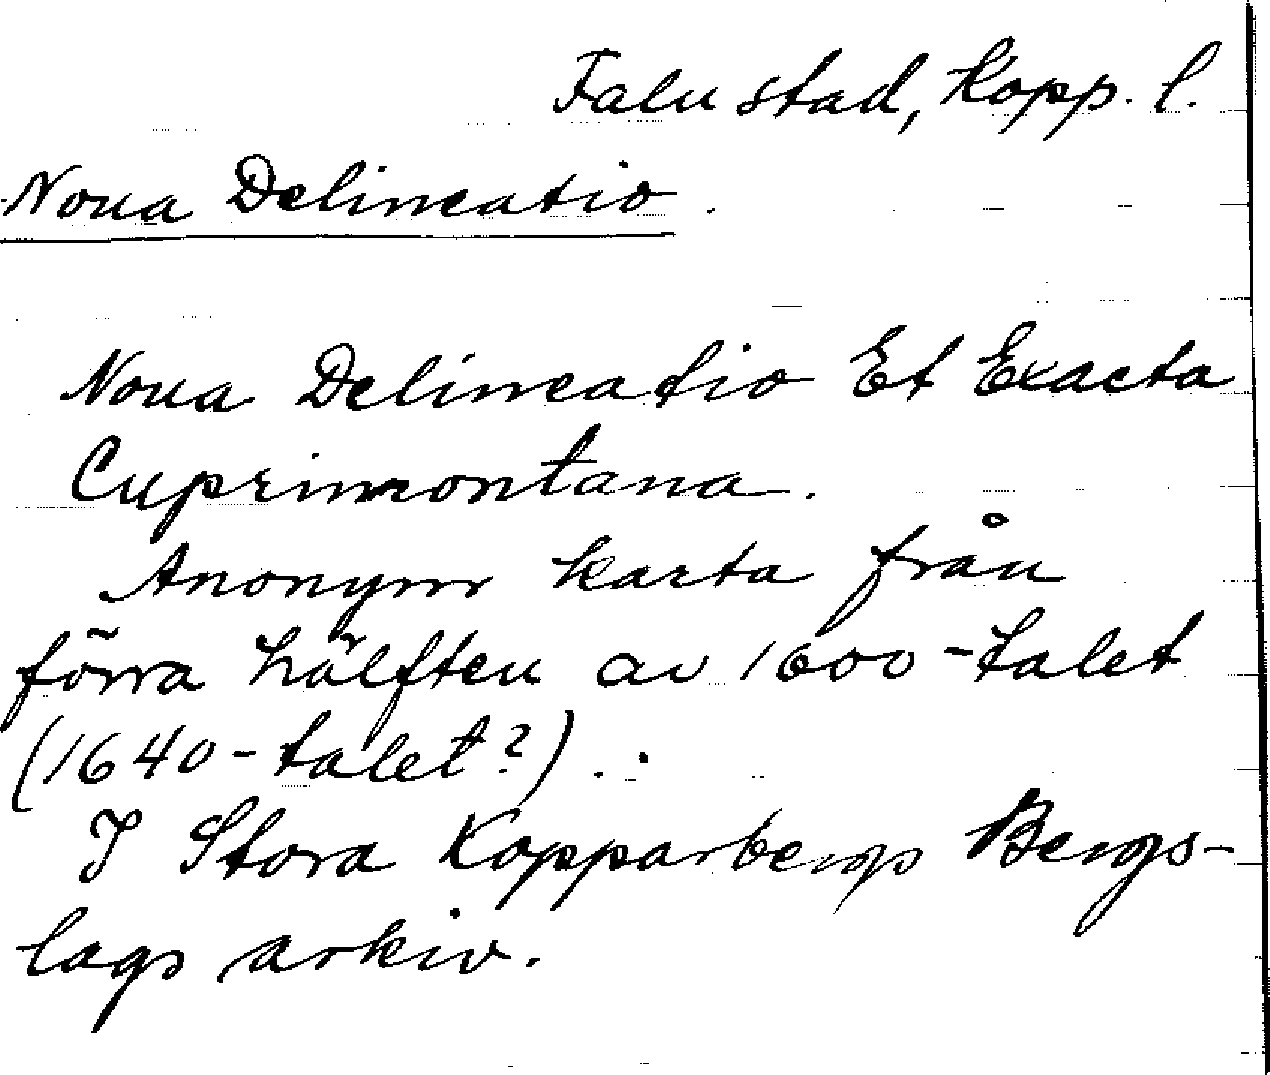 Falu stad, Kopp. l.
Noua Delineatio.
Noua Delineatio Et Exacta
Cuprimontana.
Anonym karta från
förra hälften av 1600-talet
(1640-talet?).
I Stora Kopparbergs Bergs-
lags arkiv.